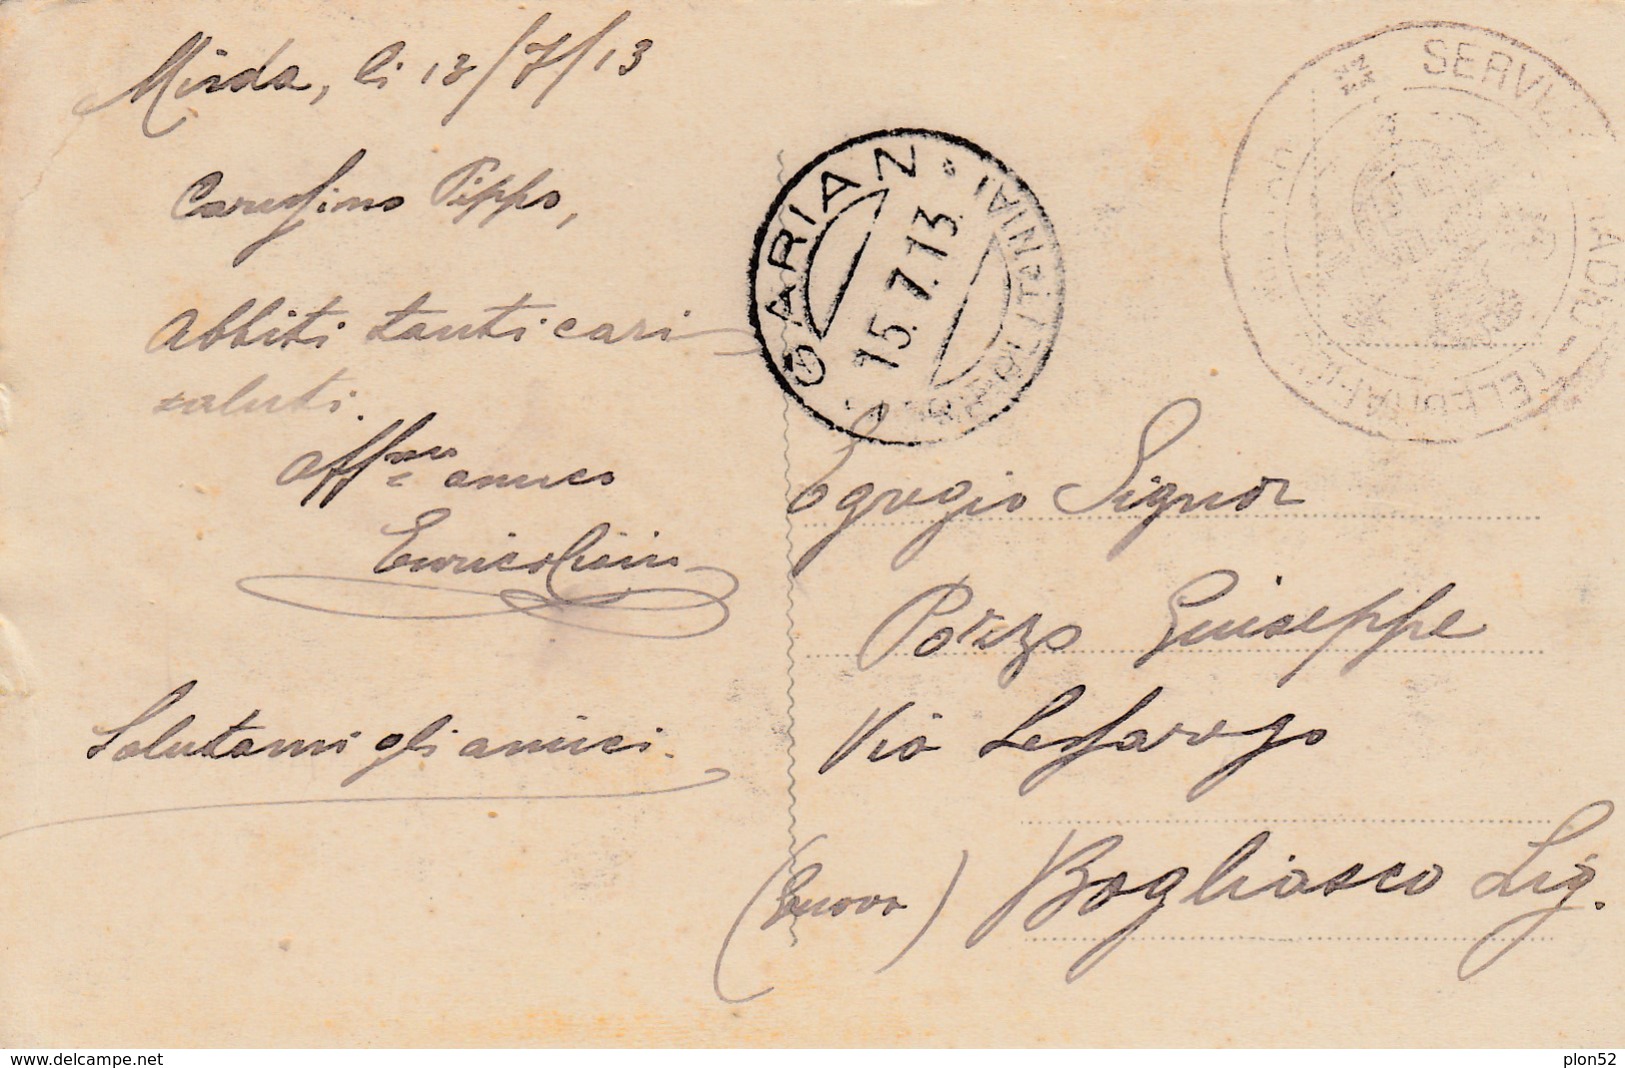 Misda, li 12/7/13
Carissimo Pippo,
Abbiti tanti cari
saluti.
Aff.mo amico
Enrico
Salutami gli amici.
GARIAN
15.7.13
TRIPOLITANIA
SERVIZI
Egregio Signor
Pozzo Giuseppe
Via
(Genova) Bogliasco Lig.
delcampe.net
plon52